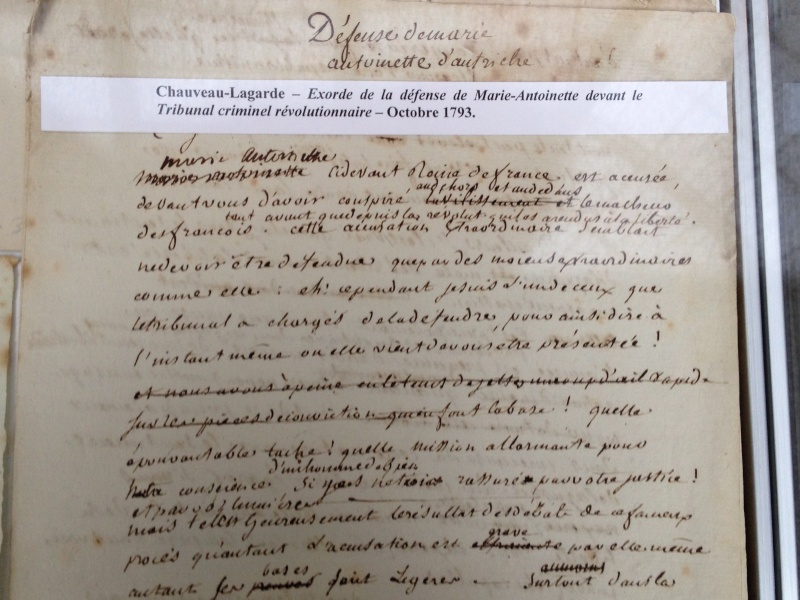 Défense de marie
antoinette d'autriche
Chauveau-Lagarde – Exorde de la défense de Marie-Antoinette devant le
Tribunal criminel révolutionnaire – Octobre 1793.
marie Antoinette
cidevant Reine de france est accusée,
au dehors et au dedans
devant vous d'avoir conspiré le malheur
tant avant que depuis la revolut. qui les a rendus à la liberté.
des francois. cette acusation extraordinaire semblait
ne devoir être défendue que par des moiens extraordinaires
comme elle : eh! cependant je suis l'un de ceux que
le tribunal a chargés de la défendre, pour ainsi dire à
l'instant même ou elle vient devous etre présentée !
et nous avons à peine eu le temps de jetter un coup d'œil rapide
sur les pieces de conviction qui en font la base ! quelle
épouvantable tache ! quelle mission allarmante pour
d'un homme de bien
conscience si rassurée par votre justice !
et par vos lumières
mais tel est heureusement le résultat des débats de ce fameux
grave
procès qu'autant l'acusation est par elle même
bases
autant ses font légères. surtout dans la